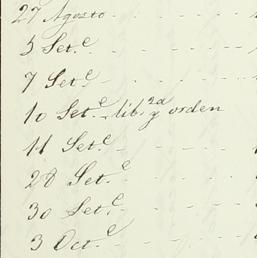 27 Agosto
5 Set.e
7 Set.e
10 Set.e lib. 2a y orden
11 Set.e
28 Set.e
30 Set.e
3 Oct.e